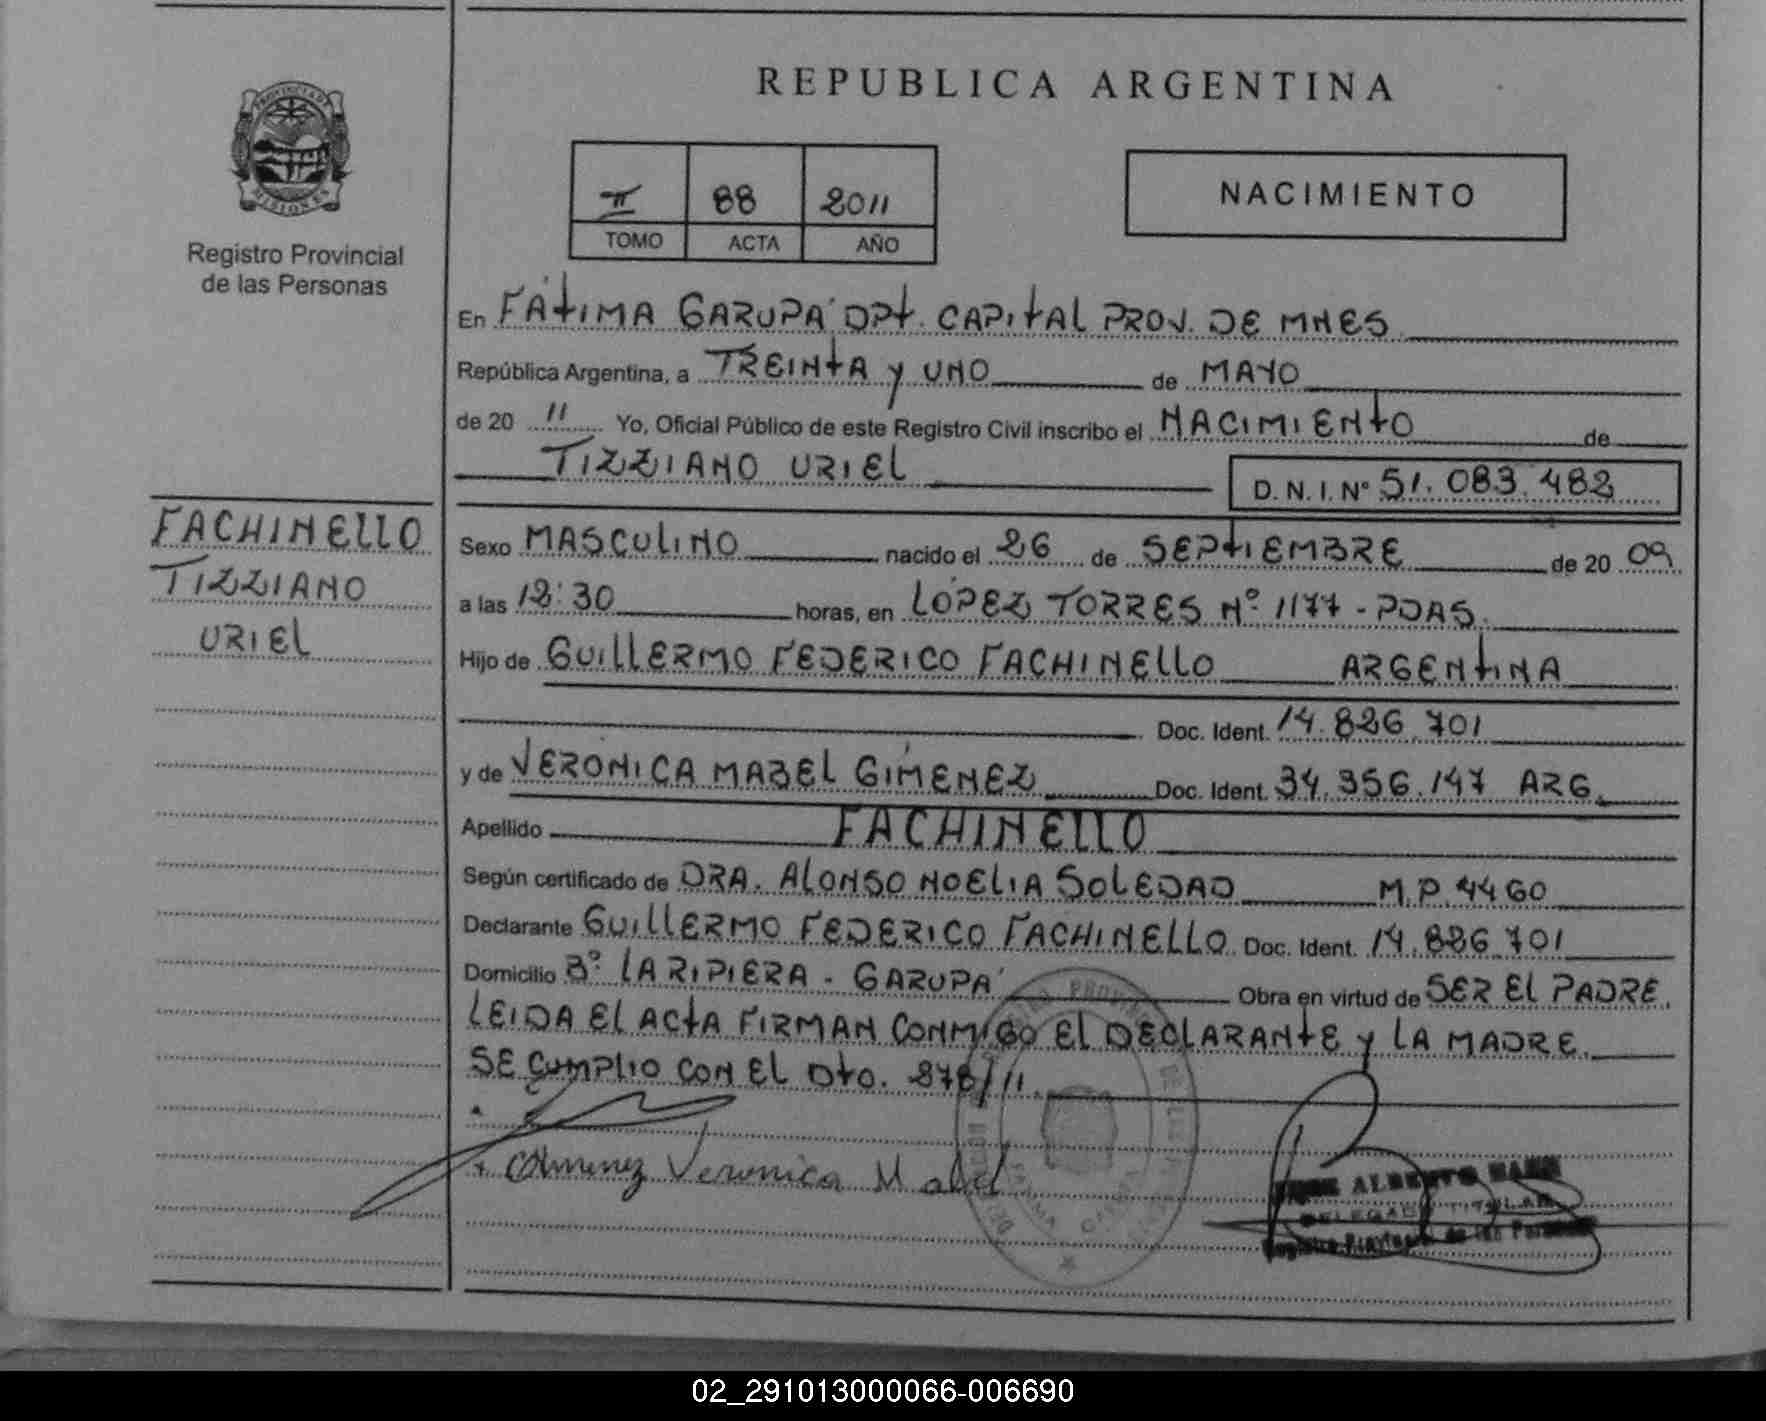 REPUBLICA ARGENTINA
PROVINCIA DE
MISIONES
Registro Provincial
de las Personas
II 88 2011
TOMO ACTA AÑO
NACIMIENTO
En FÁTIMA GARUPA' DPT. CAPITAL PROV. DE MNES
República Argentina, a TREINTA Y UNO de MAYO
de 20 11 Yo, Oficial Público de este Registro Civil inscribo el NACIMIENTO de
TIZZIANO URIEL
D. N. I. Nº 51.083.482
FACHINELLO
TIZZIANO
URIEL
Sexo MASCULINO nacido el 26 de SEPTIEMBRE de 20 09
a las 12:30 horas, en LÓPEZ TORRES Nº 1177 - PDAS.
Hijo de GUILLERMO FEDERICO FACHINELLO ARGENTINA
Doc. Ident. 14.826.701
y de VERONICA MABEL GIMÉNEZ Doc. Ident. 34.356.147 ARG.
Apellido FACHINELLO
Según certificado de DRA. ALONSO NOELIA SOLEDAD M.P. 4460
Declarante GUILLERMO FEDERICO FACHINELLO Doc. Ident. 14.826.701
Domicilio Bº LA RIPIERA - GARUPA' Obra en virtud de SER EL PADRE.
LEIDA EL ACTA FIRMAN CONMIGO EL DECLARANTE Y LA MADRE.
SE CUMPLIO CON EL DTO. 878/11.
Gimenez Veronica Mabel
JOSE ALBERTO
DELEGADO TITULAR
Registro Provincial de las Personas
02_291013000066-006690